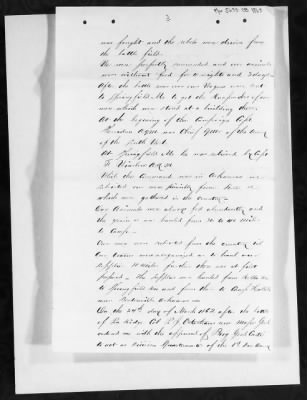 3
was fought and the whole was driven from
the battle field.
We were perfectly surrounded and our animals
were without food for two nights and 3 days
After the battle was over our Wagons were sent
to Springfield Mo to get the
now which was stored at a building there.
At the begining of the Campaign Capt
was Chief QM of the Army
of the South West
At Springfield Mo he was relieved by Capt
Winslow AQM
While the Command was in Arkansas we
subsisted our men principally from
which were gathered in the country
Our Animals were always fed abundantly and
the grain or was hauled from 20 to 40 miles
to Camp
Our men were subsisted from the country till
Our trains were organized as to haul our
supplies. 10 miles further than was at first
proposed. The supplies were hauled from Rolla Mo
to Springfield Mo and from there to Camp
near Bentonville Arkansas
On the 24th day of March 1862 after the battle
of Pea Ridge Col P. J. Osterhaus now Major Genl
ordered me with the approval of Brig Genl Curtis
to act as Division Quartermaster of the 1st Div Army